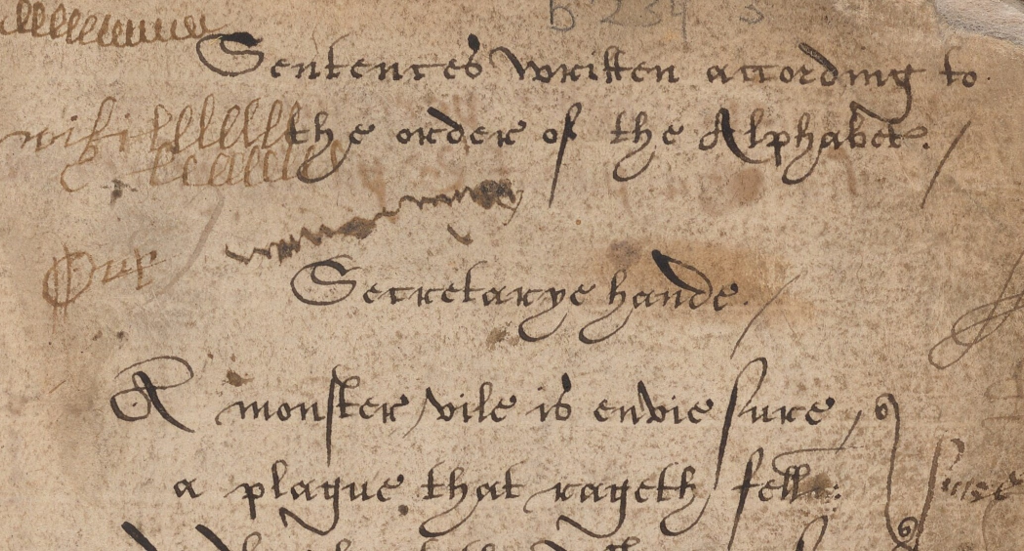 B 234
Sentences written according to
the order of the Alphabet.
Secretarye hande.
A monster vile is envie sure,
a plague that rageth fell: